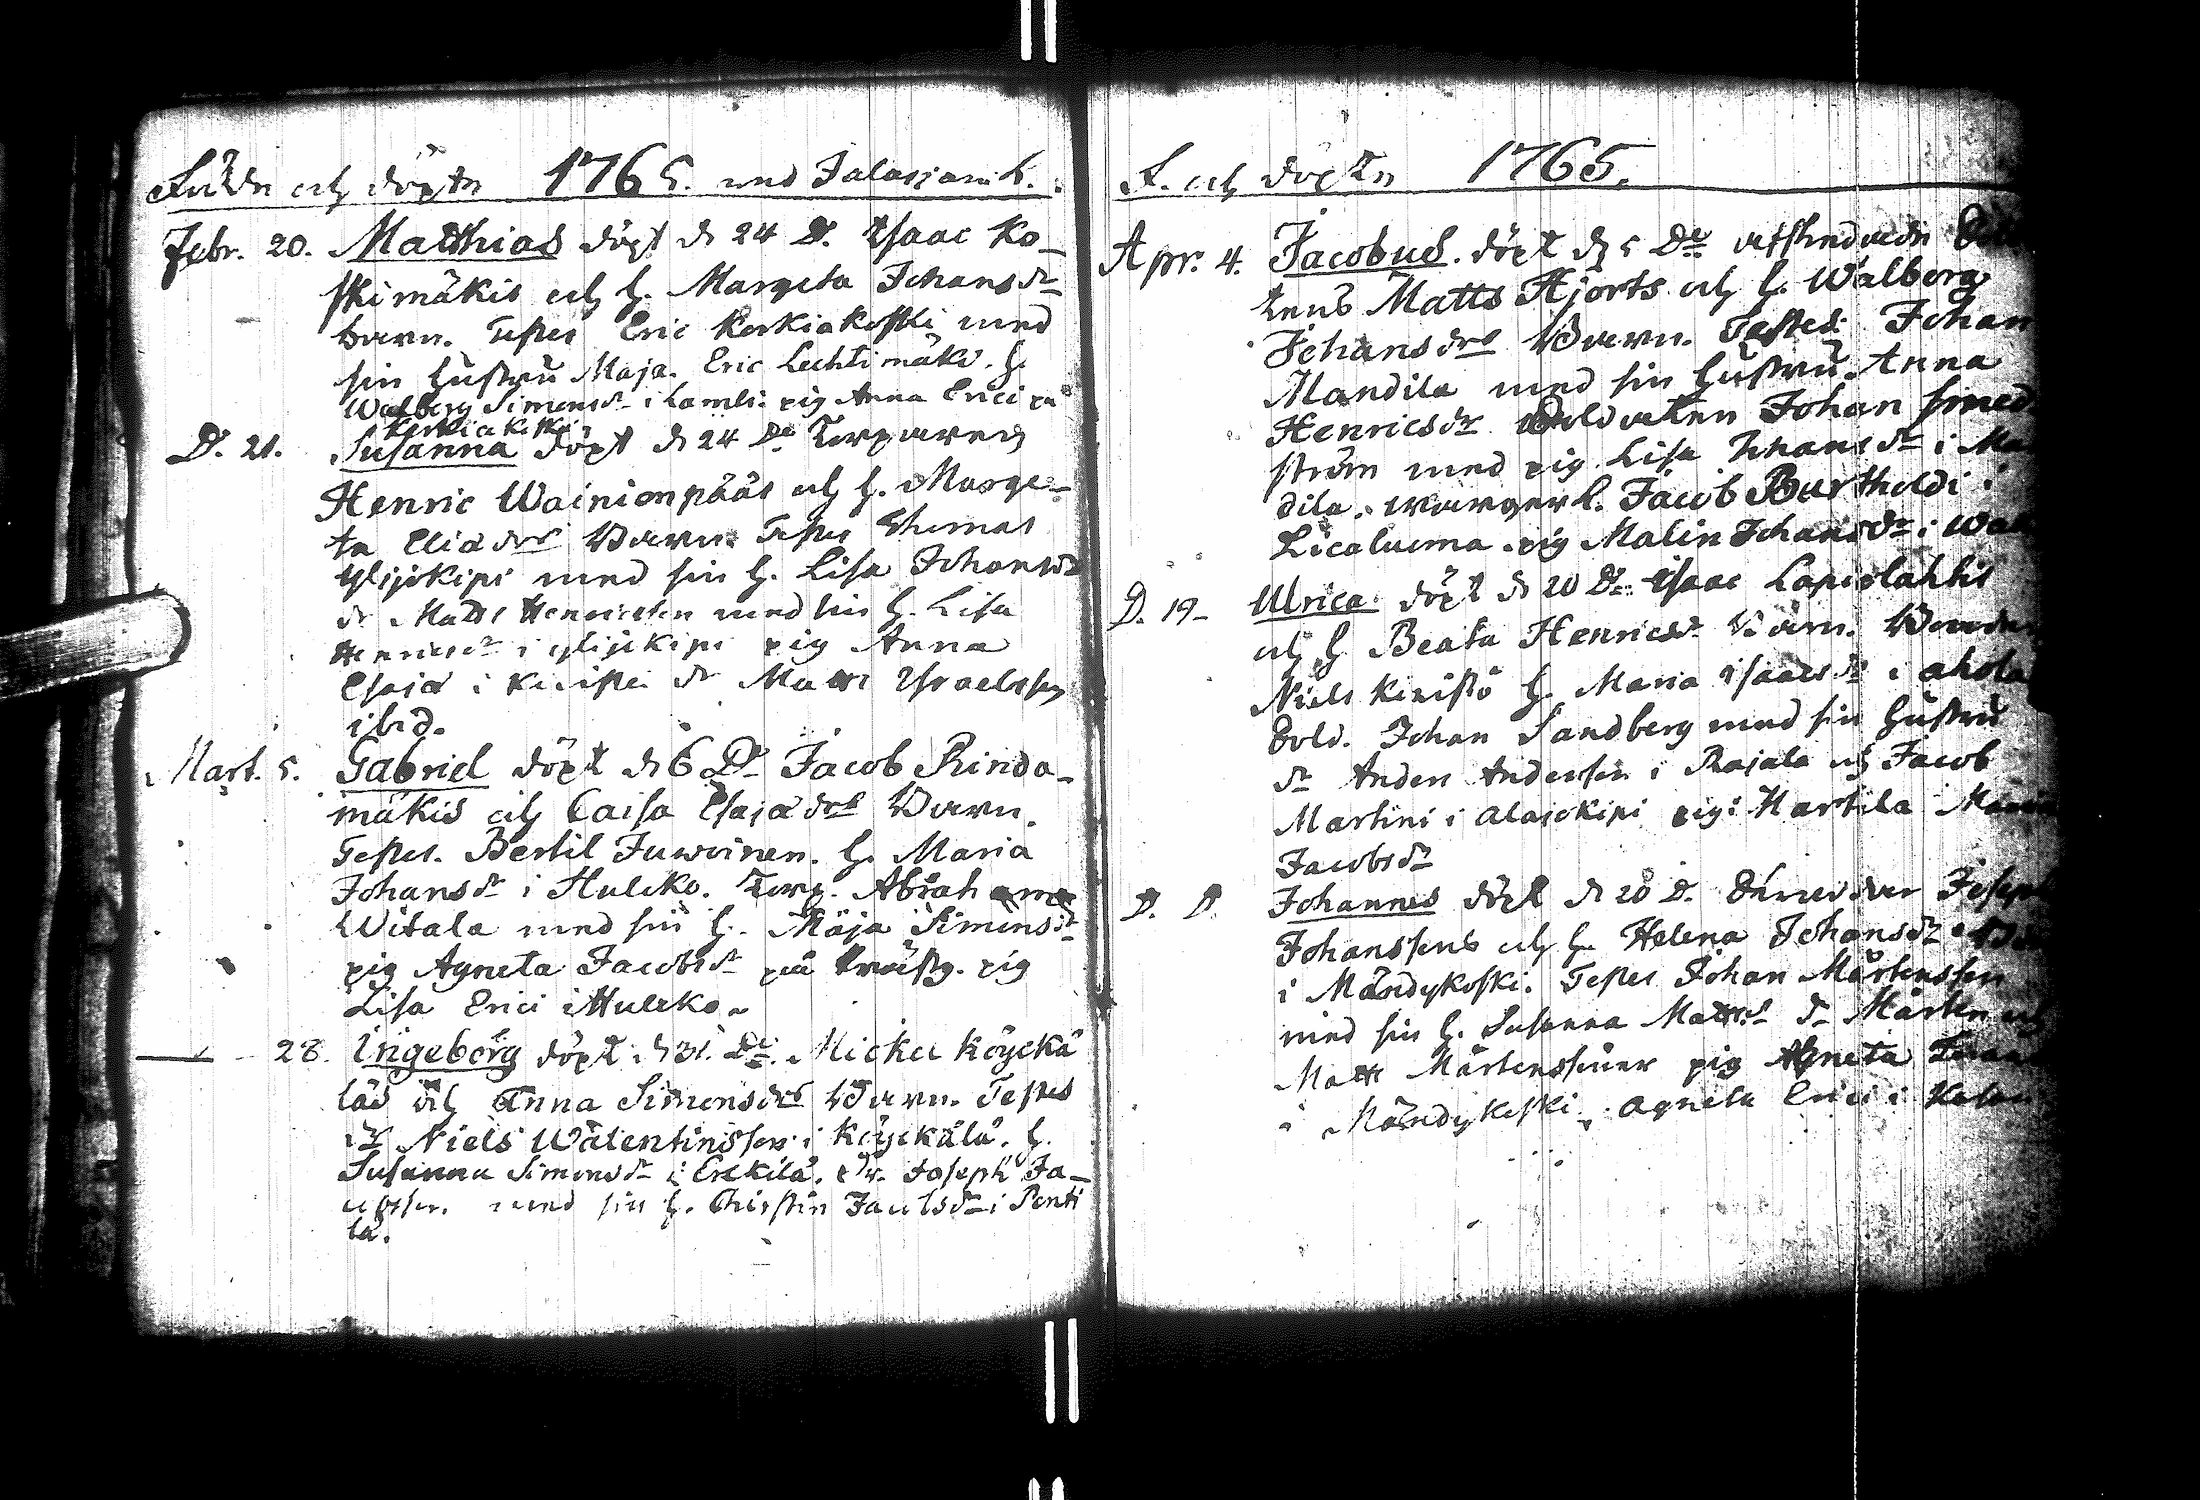 Födde och döpte 1765. uti Jalasjerwi k.
Febr. 20. Matthias döpt d. 24 D: Isaac Ko-
skimäkis och h. Margeta Johans dr
barn. Testes Eric Koskiakoski med
sin hustru Maja. Eric Lechtimäki. h.
Walborg Simonsdr i Lamli: pig Anna Erici på
Koskiakoski
D: 21. Susanna döpt d. 24 De Torparens
Henric Wainionpääs och h. Marge-
ta Eliæ drs Barn Testes Thomas
Ylijokipi med sin h. Lisa Johans
dr Matts Henricsson med sin h. Lisa
Henricsdr i ylijokipi pig Anna
Esaiæ i Keristo dr Matts Israelsson
ibid.
Mart. 5. Gabriel döpt d. 6 D: Jacob Rinda-
mäkis och Caisa Esaiæ drs Barn.
Testes. Bertil Juwoinen. h. Maria
Johansdr i Hulcko. Torp. Abraham
Witala med sin h. Maja Simonsdr
pig Agneta Jacobsdr på Prästg. pig
Lisa Erici i Hulcko
28. Ingeborg döpt d. 31. De: Mickel Köyckä
läs och Anna Simonsdrs Barn. Testes
dr Niels Walentinsson i Köyckälä. h.
Susanna Simonsdr i Erckilä. dr. Joseph Ja-
cobsson. med sin h. Christin Jacobsdr i Penti
lä.
F. och döpte 1765.
Apr. 4. Jacobus. döpt d. 5 De afskedade
tens Matts Hjorts och h. Walborg
Johansdrs Barn. Testes Johan
Mandila med sin hustru Anna
Henricsdr Soldaten Johan Smed
ström med pig Lisa Johansdr i Man
dila. Jacob Bartholdi i
Licaluoma. pig Malin Johansdr i
D. 19 Ulrica. döpt d. 20 D: Isaac Lapiolahtis
och h. Beata Henricsdr Barn.
Niels Keristö h. Maria Isaacsdr i ahola
Sold. Johan Sandberg med sin hustru
dr Anders Andersson i Rajala och Jacob
Martini i Alajokipi pig: Martila
Jacobsdr
D. D. Johannes döpt d. 20 D. Joseph
Johanssons och h. Helena Johansdr
i Mändykoski. Testes Johan Mårtensson
med sin h. Susanna Mattsdr dr Mårten och
Matts Mårtenssöner pig Agneta
i Mändykoski. Agneta Erici i